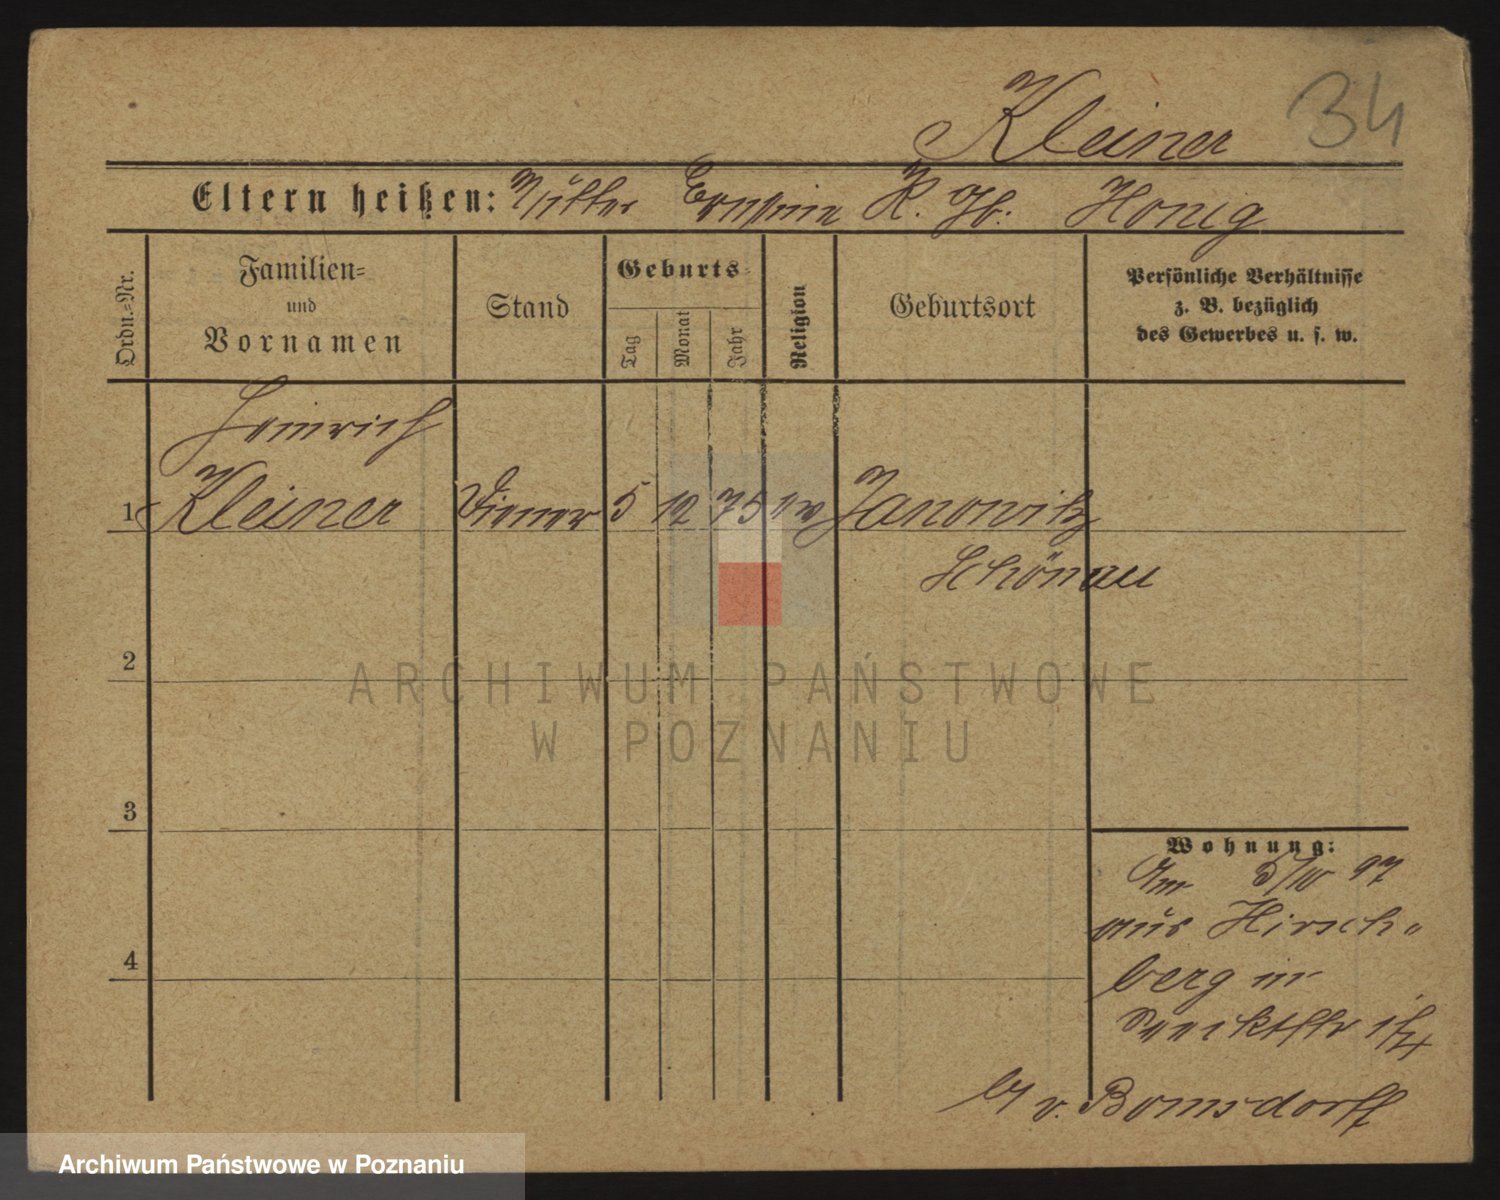 Kleiner
34
Eltern heißen: Mutter Ernstine K. gb. Honig
Ordn.-Nr.
Familien-
und
Vornamen
Stand
Geburts-
Tag
Monat
Jahr
Religion
Geburtsort
Persönliche Verhältnisse
z. B. bezüglich
des Gewerbes u. s. w.
Heinrich
1 Kleiner Diener 5 12 75 ev Janowitz
Schönau
2
ARCHIWUM PAŃSTWOWE
W POZNANIU
3
4
Wohnung:
Am 5/10 97
aus Hirsch-
berg in
b/ v. Bomsdorff
Archiwum Państwowe w Poznaniu